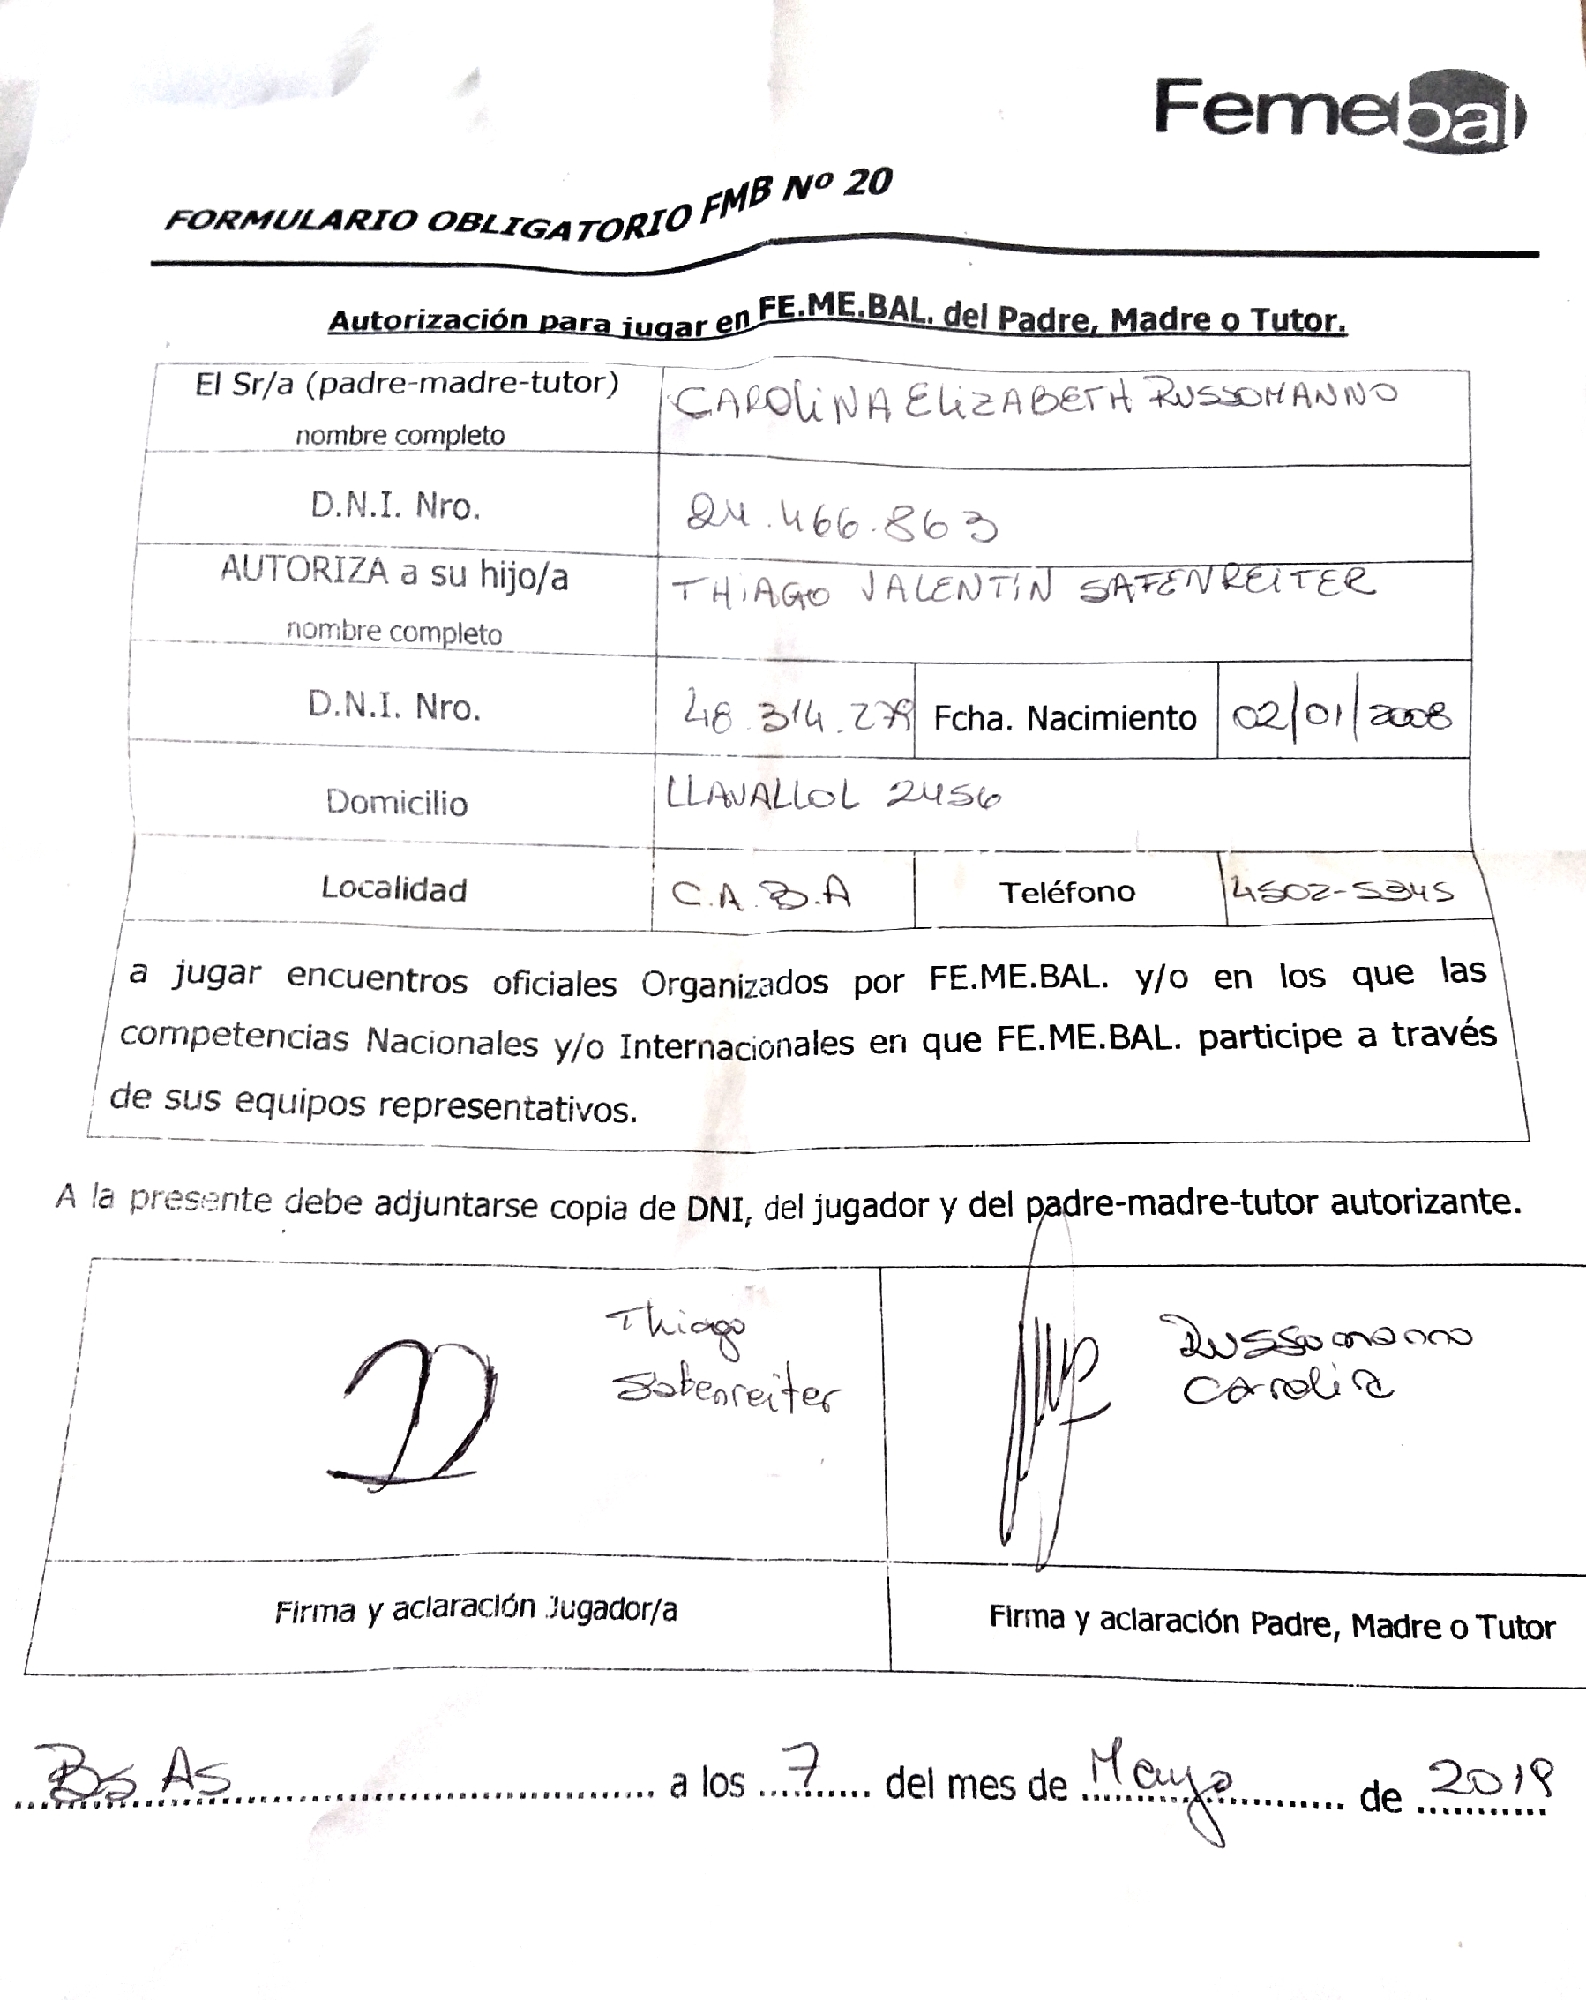 Femebal
FORMULARIO OBLIGATORIO FMB Nº 20
Autorización para jugar en FE.ME.BAL. del Padre, Madre o Tutor.
El Sr/a (padre-madre-tutor) CAROLINA ELIZABETH RUSSOMANNO
nombre completo
D.N.I. Nro. 24.466.863
AUTORIZA a su hijo/a THIAGO VALENTIN SAFENREITER
nombre completo
D.N.I. Nro. 48.314.279 Fcha. Nacimiento 02/01/2008
Domicilio LLAVALLOL 2456
Localidad C.A.B.A Teléfono 4502-5345
a jugar encuentros oficiales Organizados por FE.ME.BAL. y/o en los que las
competencias Nacionales y/o Internacionales en que FE.ME.BAL. participe a través
de sus equipos representativos.
A la presente debe adjuntarse copia de DNI, del jugador y del padre-madre-tutor autorizante.
Thiago
Safenreiter
Russomanno
Carolina
Firma y aclaración Jugador/a
Firma y aclaración Padre, Madre o Tutor
Bs As a los 7 del mes de Mayo de 2019